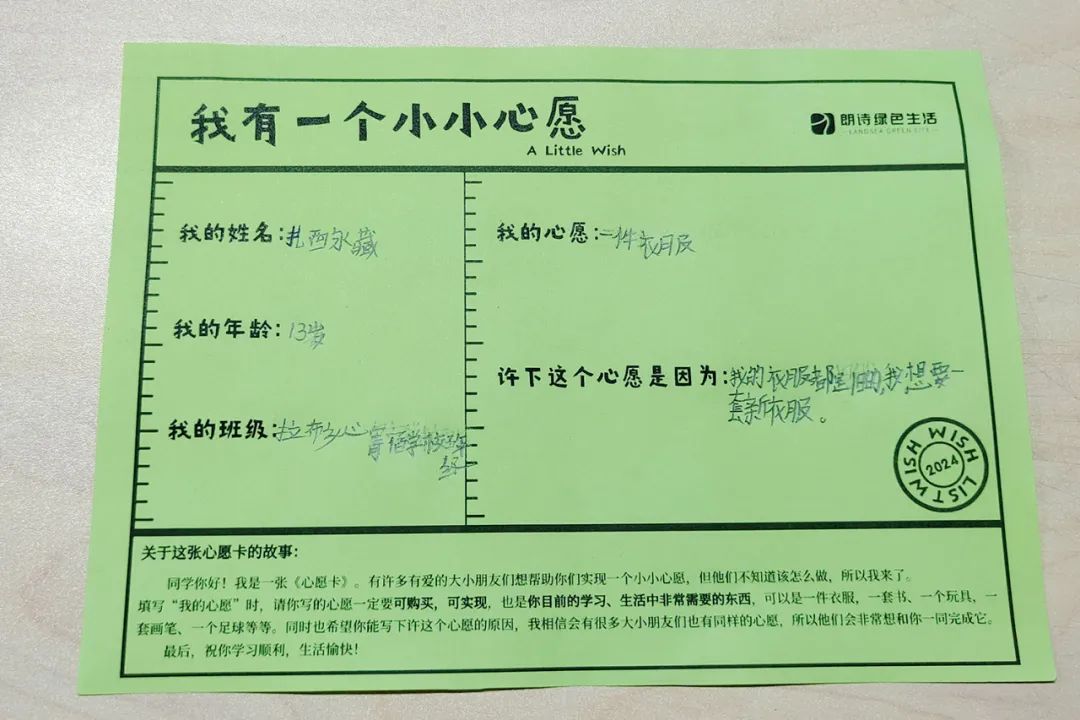 我有一个小小心愿
A Little Wish
朗诗绿色生活
LANDSEA GREEN LIFE
我的姓名:扎西尔藏
我的年龄:13岁
我的班级:拉布乡心
学校
我的心愿:一件衣服
许下这个心愿是因为:我的衣服都旧,我想要一
套新衣服。
WISH LIST WISH
2024
关于这张心愿卡的故事:
同学你好!我是一张《心愿卡》。有许多有爱的大小朋友们想帮助你们实现一个小小心愿,但他们不知道该怎么做,所以我来了。
填写“我的心愿”时,请你写的心愿一定要可购买,可实现,也是你目前的学习、生活中非常需要的东西,可以是一件衣服,一套书、一个玩具,一
套画笔、一个足球等等。同时也希望你能写下许这个心愿的原因,我相信会有很多大小朋友们也有同样的心愿,所以他们会非常想和你一同完成它。
最后,祝你学习顺利,生活愉快!